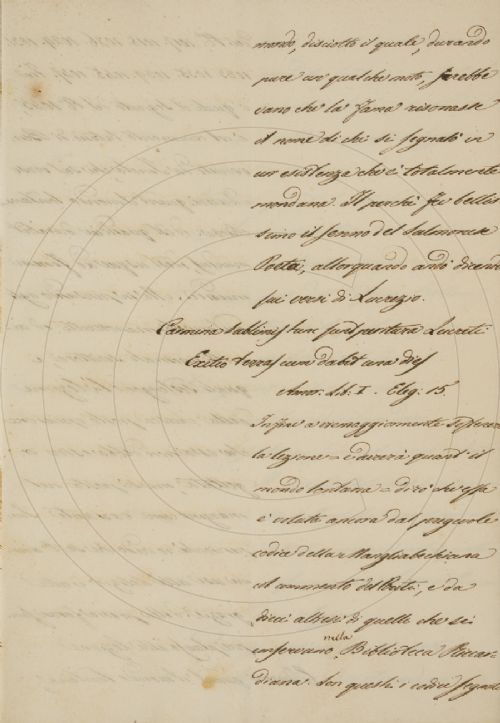 mondo, disciolto il quale, durando
pure un qualche moto, sarebbe
vano che la fama risonasse
il nome di chi si segnalò in
un'esistenza che è totalmente
mondana. Il perchè fu bellis
simo il senno del Sulmonese
Poeta, allorquando andò dicendo
sui versi di Lucrezio.
Carmina sublimis tunc sunt peritura Lucreti
Exitio terras cum dabit una dies
Amor. Lib. I. Eleg. 15.
Infine a vemaggiamente difendere
la lezione = e durerà quant' il
mondo lontana = dirò che essa
è voluta ancora dal pregevole
codice della Magliabechiana
col commento del Buti, e da
dieci altresì di quelli che si
conservano nella Biblioteca Riccar-
diana. Son questi i codici segnati